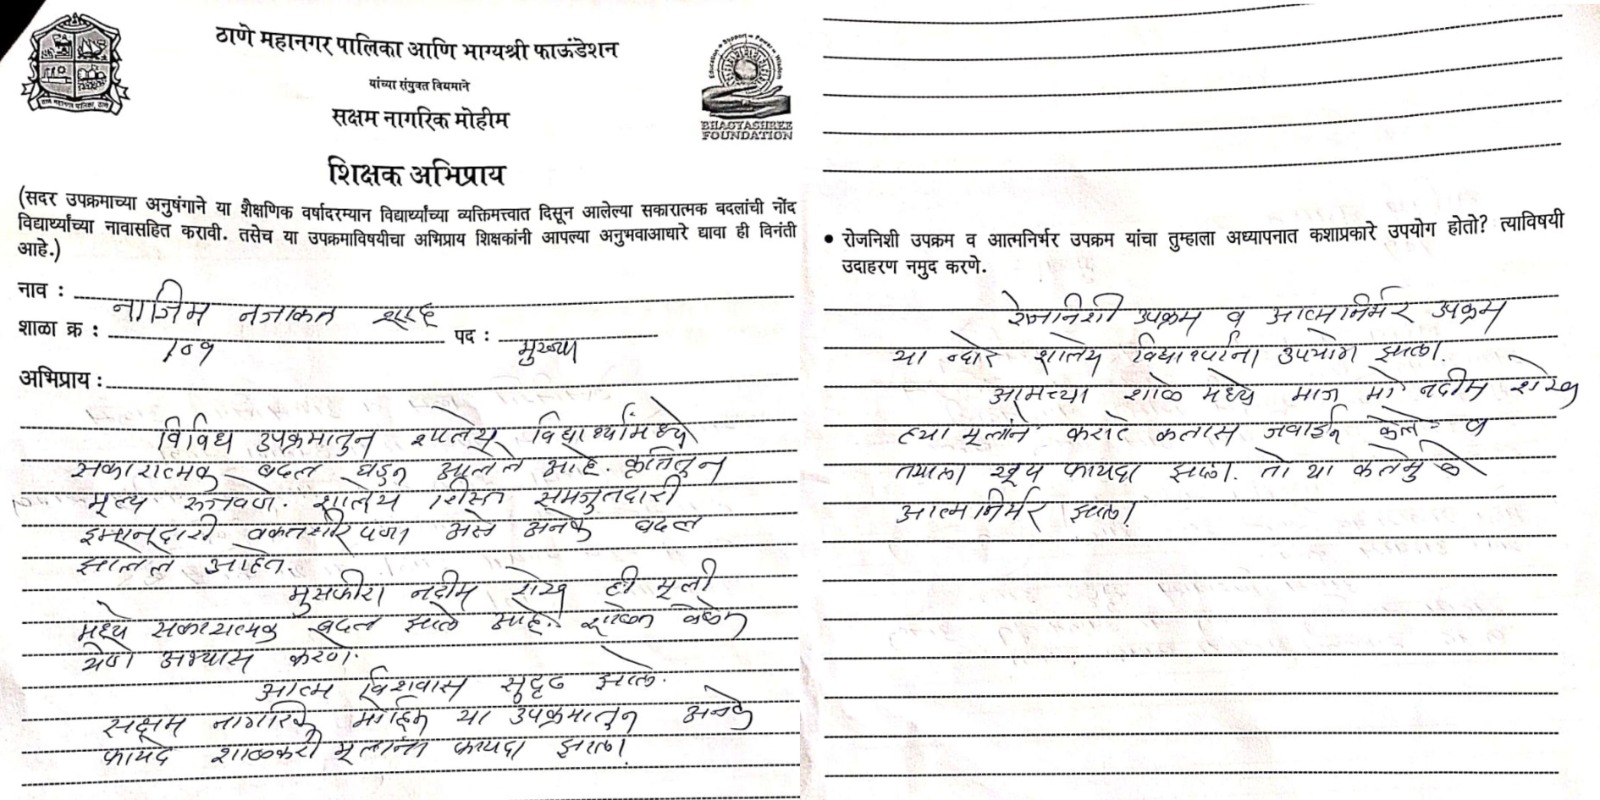 ठाणे महानगर पालिका आणि भाग्यश्री फाऊंडेशन
यांच्या संयुक्त विद्यमाने
सक्षम नागरिक मोहीम
ठाणे महानगर पालिका, ठाणे
Education • Support • Power • Wisdom
BHAGYASHREE
FOUNDATION
शिक्षक अभिप्राय
(सदर उपक्रमाच्या अनुषंगाने या शैक्षणिक वर्षादरम्यान विद्यार्थ्यांच्या व्यक्तिमत्त्वात दिसून आलेल्या सकारात्मक बदलांची नोंद
विद्यार्थ्यांच्या नावासहित करावी. तसेच या उपक्रमाविषयीचा अभिप्राय शिक्षकांनी आपल्या अनुभवाआधारे द्यावा ही विनंती
आहे.)
नाव : नाजिम नजाकत
शाळा क्र : १०१ पद : मुख्या
अभिप्राय :
विविध उपक्रमातुन शालेय विद्यार्थ्यांमध्ये
सकारात्मक बदल घडुन आलेले आहे. कृतितुन
मूल्य रुजवणे. शालेय शिस्त समजुतदारी
इमानदारी वक्तशीरपणा असे अनेक बदल
झालेले आहेत.
नदीम शेख ही मूली
मध्ये सकारात्मक बदल झाले आहे. शाळेत वेळेत
येणे अभ्यास करणे.
आत्म विश्वास सुदृढ झाले.
सक्षम नागरिक मोहिम या उपक्रमातुन अनेक
फायदे शाळकरी मूलांना फायदा झाला.
• रोजनिशी उपक्रम व आत्मनिर्भर उपक्रम यांचा तुम्हाला अध्यापनात कशाप्रकारे उपयोग होतो? त्याविषयी
उदाहरण नमुद करणे.
रोजनिशी उपक्रम व आत्मनिर्भर उपक्रम
या शालेय विद्यार्थ्यांना उपयोग झाला.
आमच्या शाळे मध्ये नदीम शेख
ह्या मूलांने कराटे क्लास जवाईन केले व
त्याला खूप फायदा झाला. तो या
आत्मनिर्भर झाला